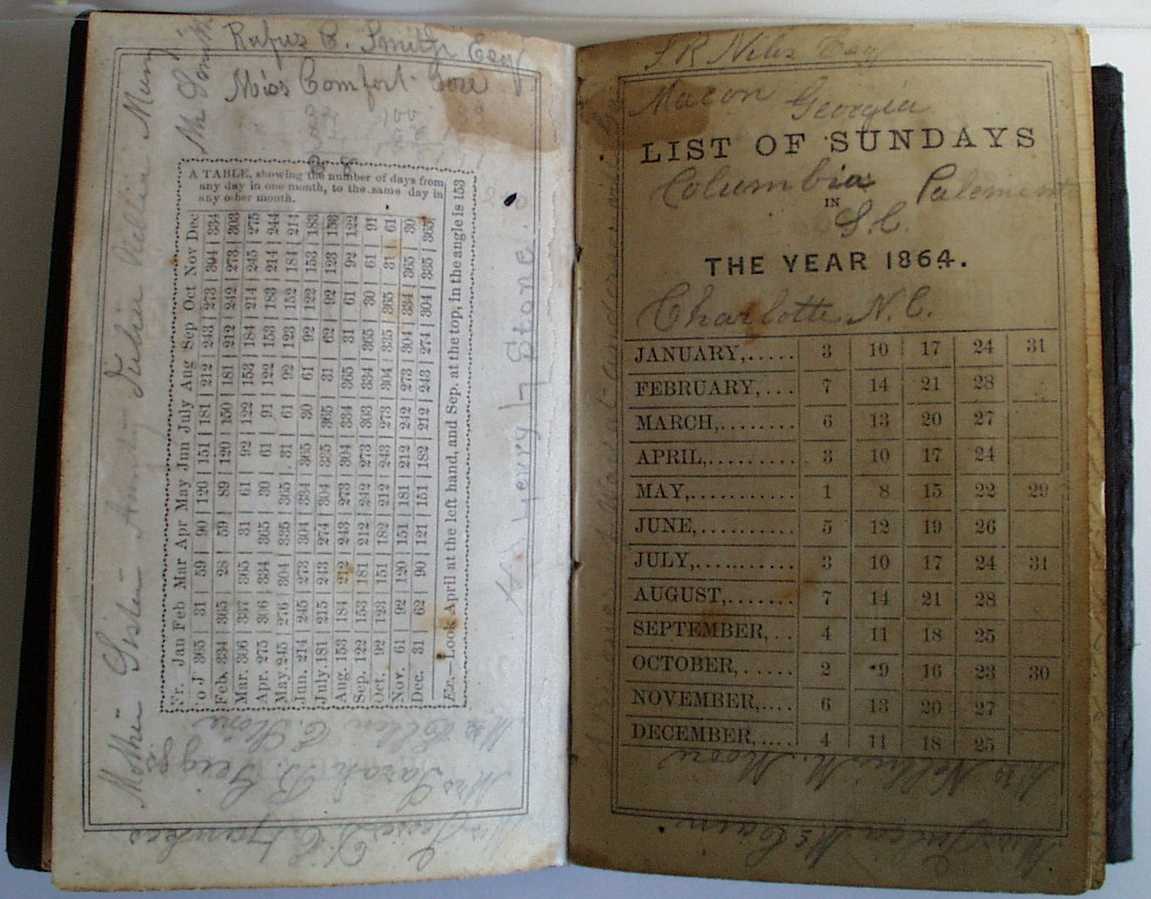 Rufus B. Smith Esq
Miss Comfort
A TABLE, showing the number of days from
any day in one month, to the same day in
any other month.
Fr. Jan Feb Mar Apr May Jun July Aug Sep Oct Nov Dec
To J 365 31 59 90 120 151 181 212 243 273 304 334
Feb. 334 365 28 59 89 120 150 181 212 242 273 303
Mar. 306 337 365 31 61 92 122 153 184 214 245 275
Apr. 275 306 334 365 30 61 91 122 153 183 214 244
May. 245 276 304 335 365 31 61 92 123 152 184 214
Jun. 214 245 273 304 334 365 30 61 92 122 153 183
July. 181 215 243 274 304 335 365 31 62 92 123
Aug. 153 184 212 243 273 304 334 365 31 61 92 122
Sep. 122 153 181 212 242 273 303 334 365 30 61 91
Oct. 92 123 151 182 212 243 273 304 335 365 31 61
Nov. 61 92 120 151 181 212 242 273 304 334 365 30
Dec. 31 62 90 121 151 182 212 243 274 304 335 365
Ex.—Look April at the left hand, and Sep. at the top, in the angle is 153
Henry L Stone.
Mother Sister Aunty Julia Nellia
Mrs Ellen C. Stone
Mrs Sarah B.
S R Niles Esq
Macon Georgia
LIST OF SUNDAYS
Columbia
IN
S C.
THE YEAR 1864.
Charlotte N. C.
JANUARY,..... 3 10 17 24 31
FEBRUARY,... 7 14 21 28
MARCH,........ 6 13 20 27
APRIL,......... 3 10 17 24
MAY,........... 1 8 15 22 29
JUNE,.......... 5 12 19 26
JULY,.......... 3 10 17 24 31
AUGUST,....... 7 14 21 28
SEPTEMBER,.. 4 11 18 25
OCTOBER,..... 2 9 16 23 30
NOVEMBER,.... 6 13 20 27
DECEMBER,.... 4 11 18 25
Mrs Nellie M. Moore
Mrs Julia